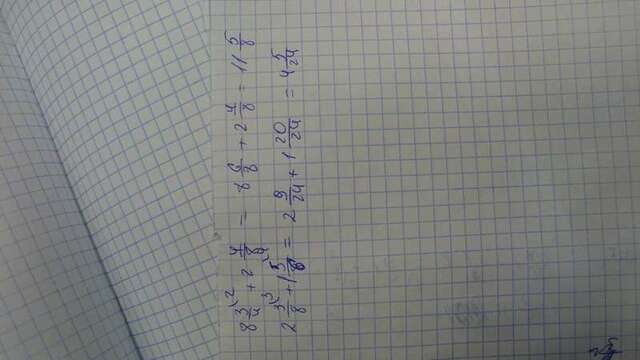 8 3/4 \2 + 2 4/8 = 8 6/8 + 2 4/8 = 11 5/8
2 3/8 \3 + 1 5/6 \4 = 2 9/24 + 1 20/24 = 4 5/24